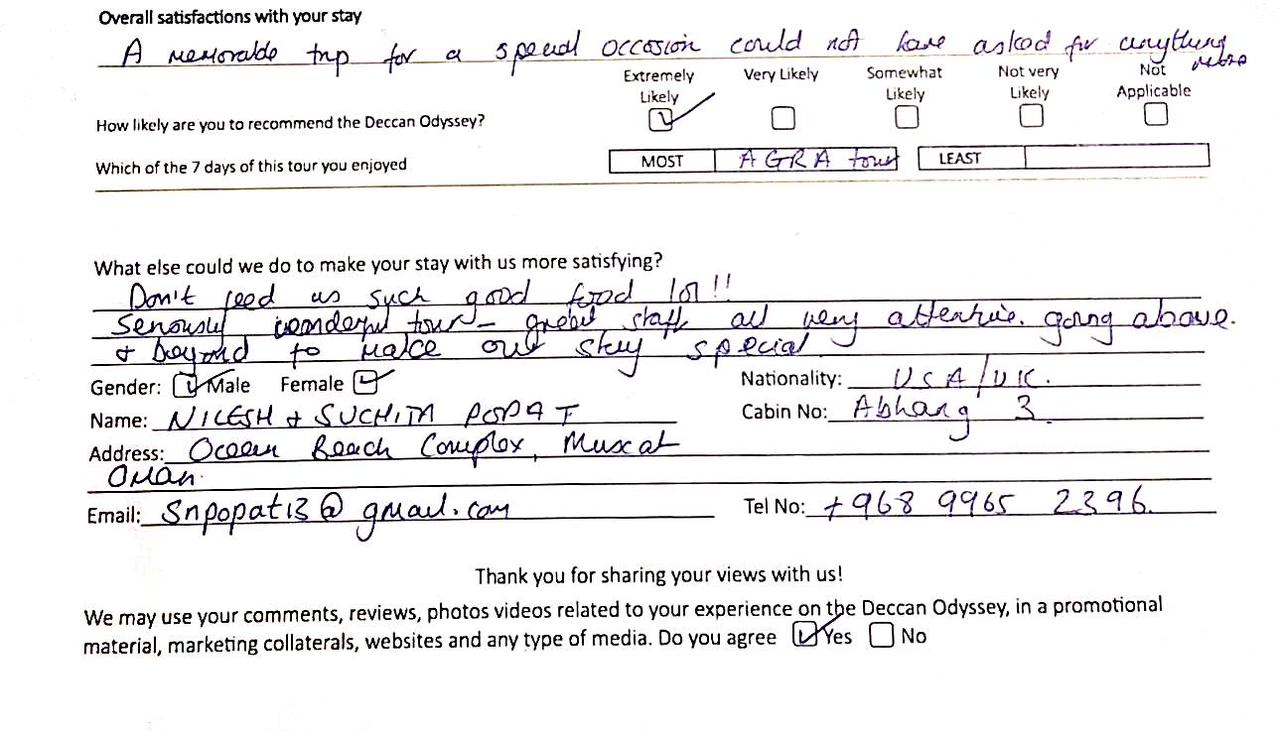 Overall satisfactions with your stay
A memorable trip for a special occasion could not have asked for anything more
Extremely Likely Very Likely Somewhat Likely Not very Likely Not Applicable
How likely are you to recommend the Deccan Odyssey?
Which of the 7 days of this tour you enjoyed MOST AGRA tour LEAST
What else could we do to make your stay with us more satisfying?
Don't feed us such good food lol!!
Seriously wonderful tour - great staff all very attentive. going above.
& beyond to make our stay special
Gender: Male Female Nationality: USA/UK.
Name: NILESH & SUCHITA POPAT Cabin No: Abhang 3.
Address: Ocean Beach Complex, Muscat
Oman.
Email: Snpopat13@gmail.com Tel No: +968 9965 2396.
Thank you for sharing your views with us!
We may use your comments, reviews, photos videos related to your experience on the Deccan Odyssey, in a promotional
material, marketing collaterals, websites and any type of media. Do you agree Yes No